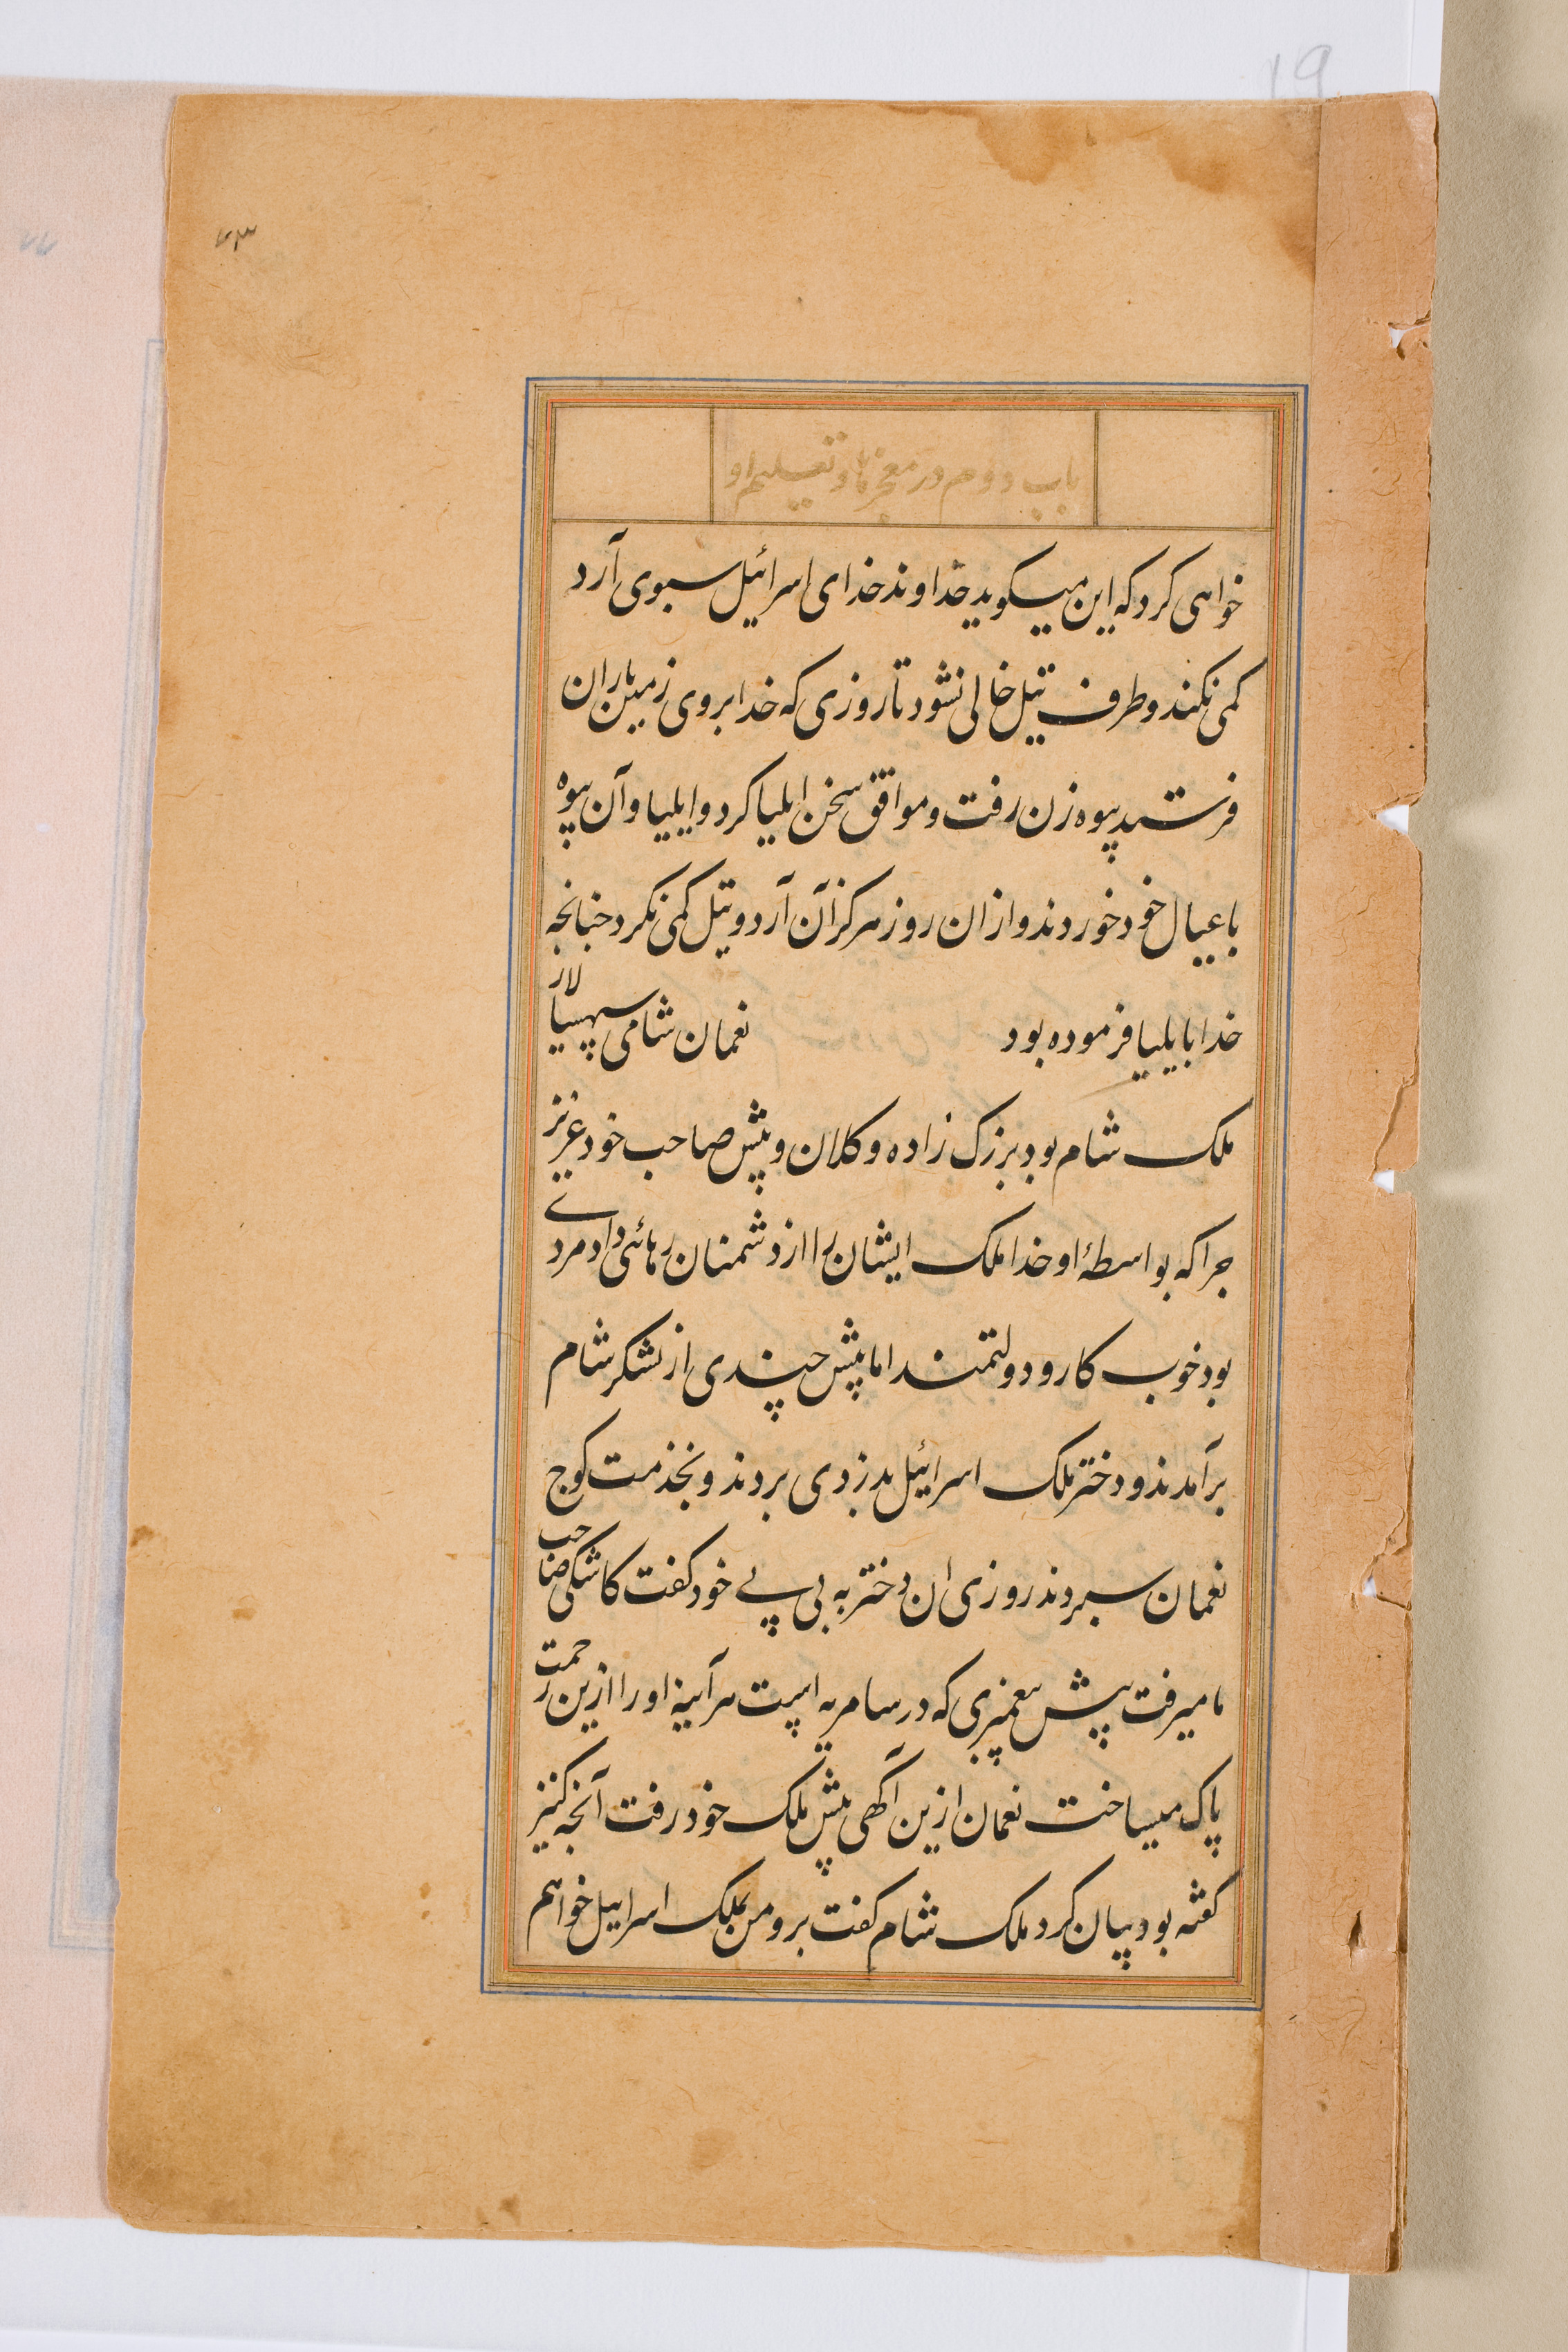 19
۷۳
باب دوم در معجزها و تعلیم او
خواهی کرد که این میکوید خداوند خدای اسرائیل سبوی آرد
کمی نکند و ظرف تیل خالی نشود تا روزی که خدا بروی زمین باران
فرستد پیوه زن رفت و موافق سخن ایلیا کرد و ایلیا و آن پیوه
با عیال خود خوردند و ازان روز هرکز آن آرد و تیل کمی نکرد چنانچه
خدا بایلیا فرموده بود نعمان شامی سپهسالار
ملک شام بود بزرک زاده و کلان و پیش صاحب خود عزیز
چرا که بواسطهٔ او خدا ملک ایشان را از دشمنان رهائی داد مردے
بود خوب کار و دولتمند اما پیش چندی از لشکر شام
برآمدند و دختر ملک اسرائیل بدزدی بردند و بخدمت کوچ
نعمان سپردند روزی ان دختر به بی بے خود کفت کاشکی صاحب
ما میرفت پیش پیغمبری که در سامریه است هرآینه او را ازین زحمت
پاک میساخت نعمان ازین آگهی پیش ملک خود رفت آنچه کنیز
کفته بود بیان کرد ملک شام کفت برو من بملک اسراییل خواهم